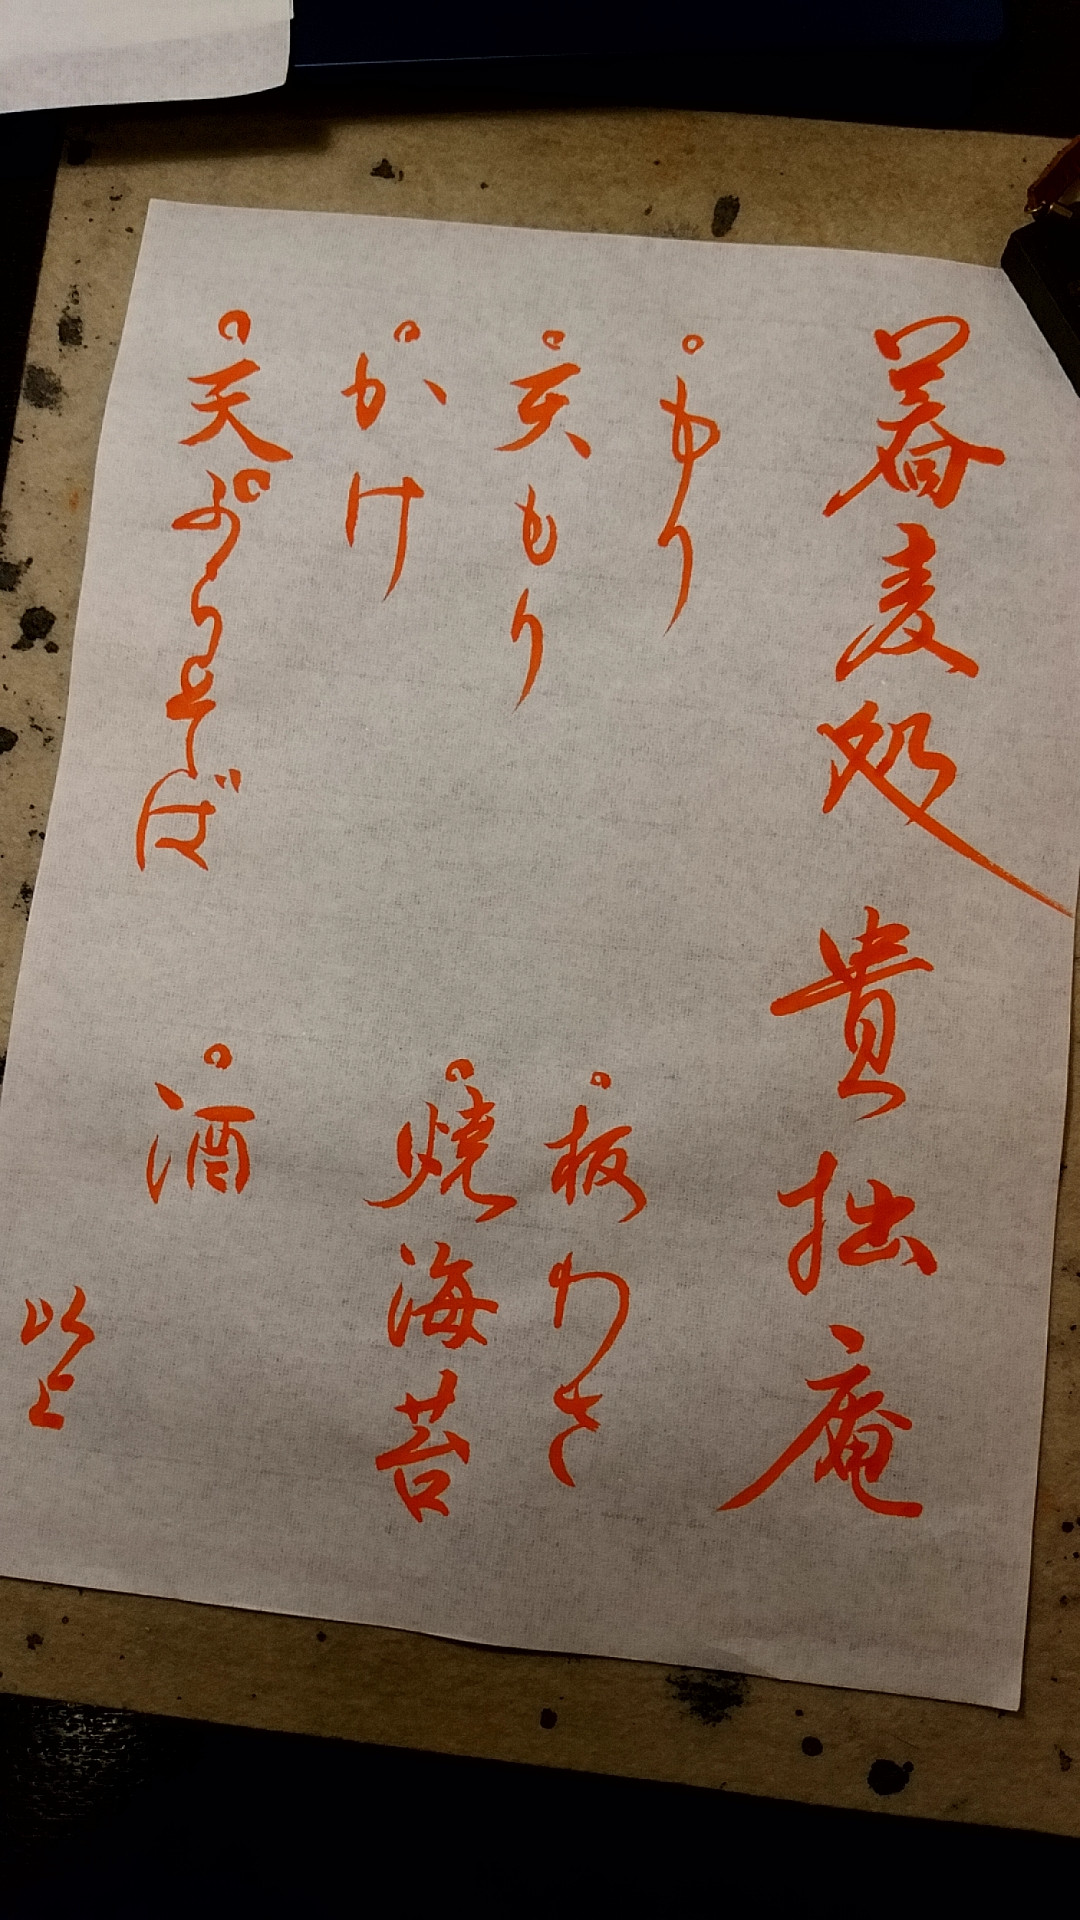 蕎麦処 貴拙庵
。もり
。天もり
。かけ
。天ぷらそば
。板わさ
。焼海苔
。酒
以上